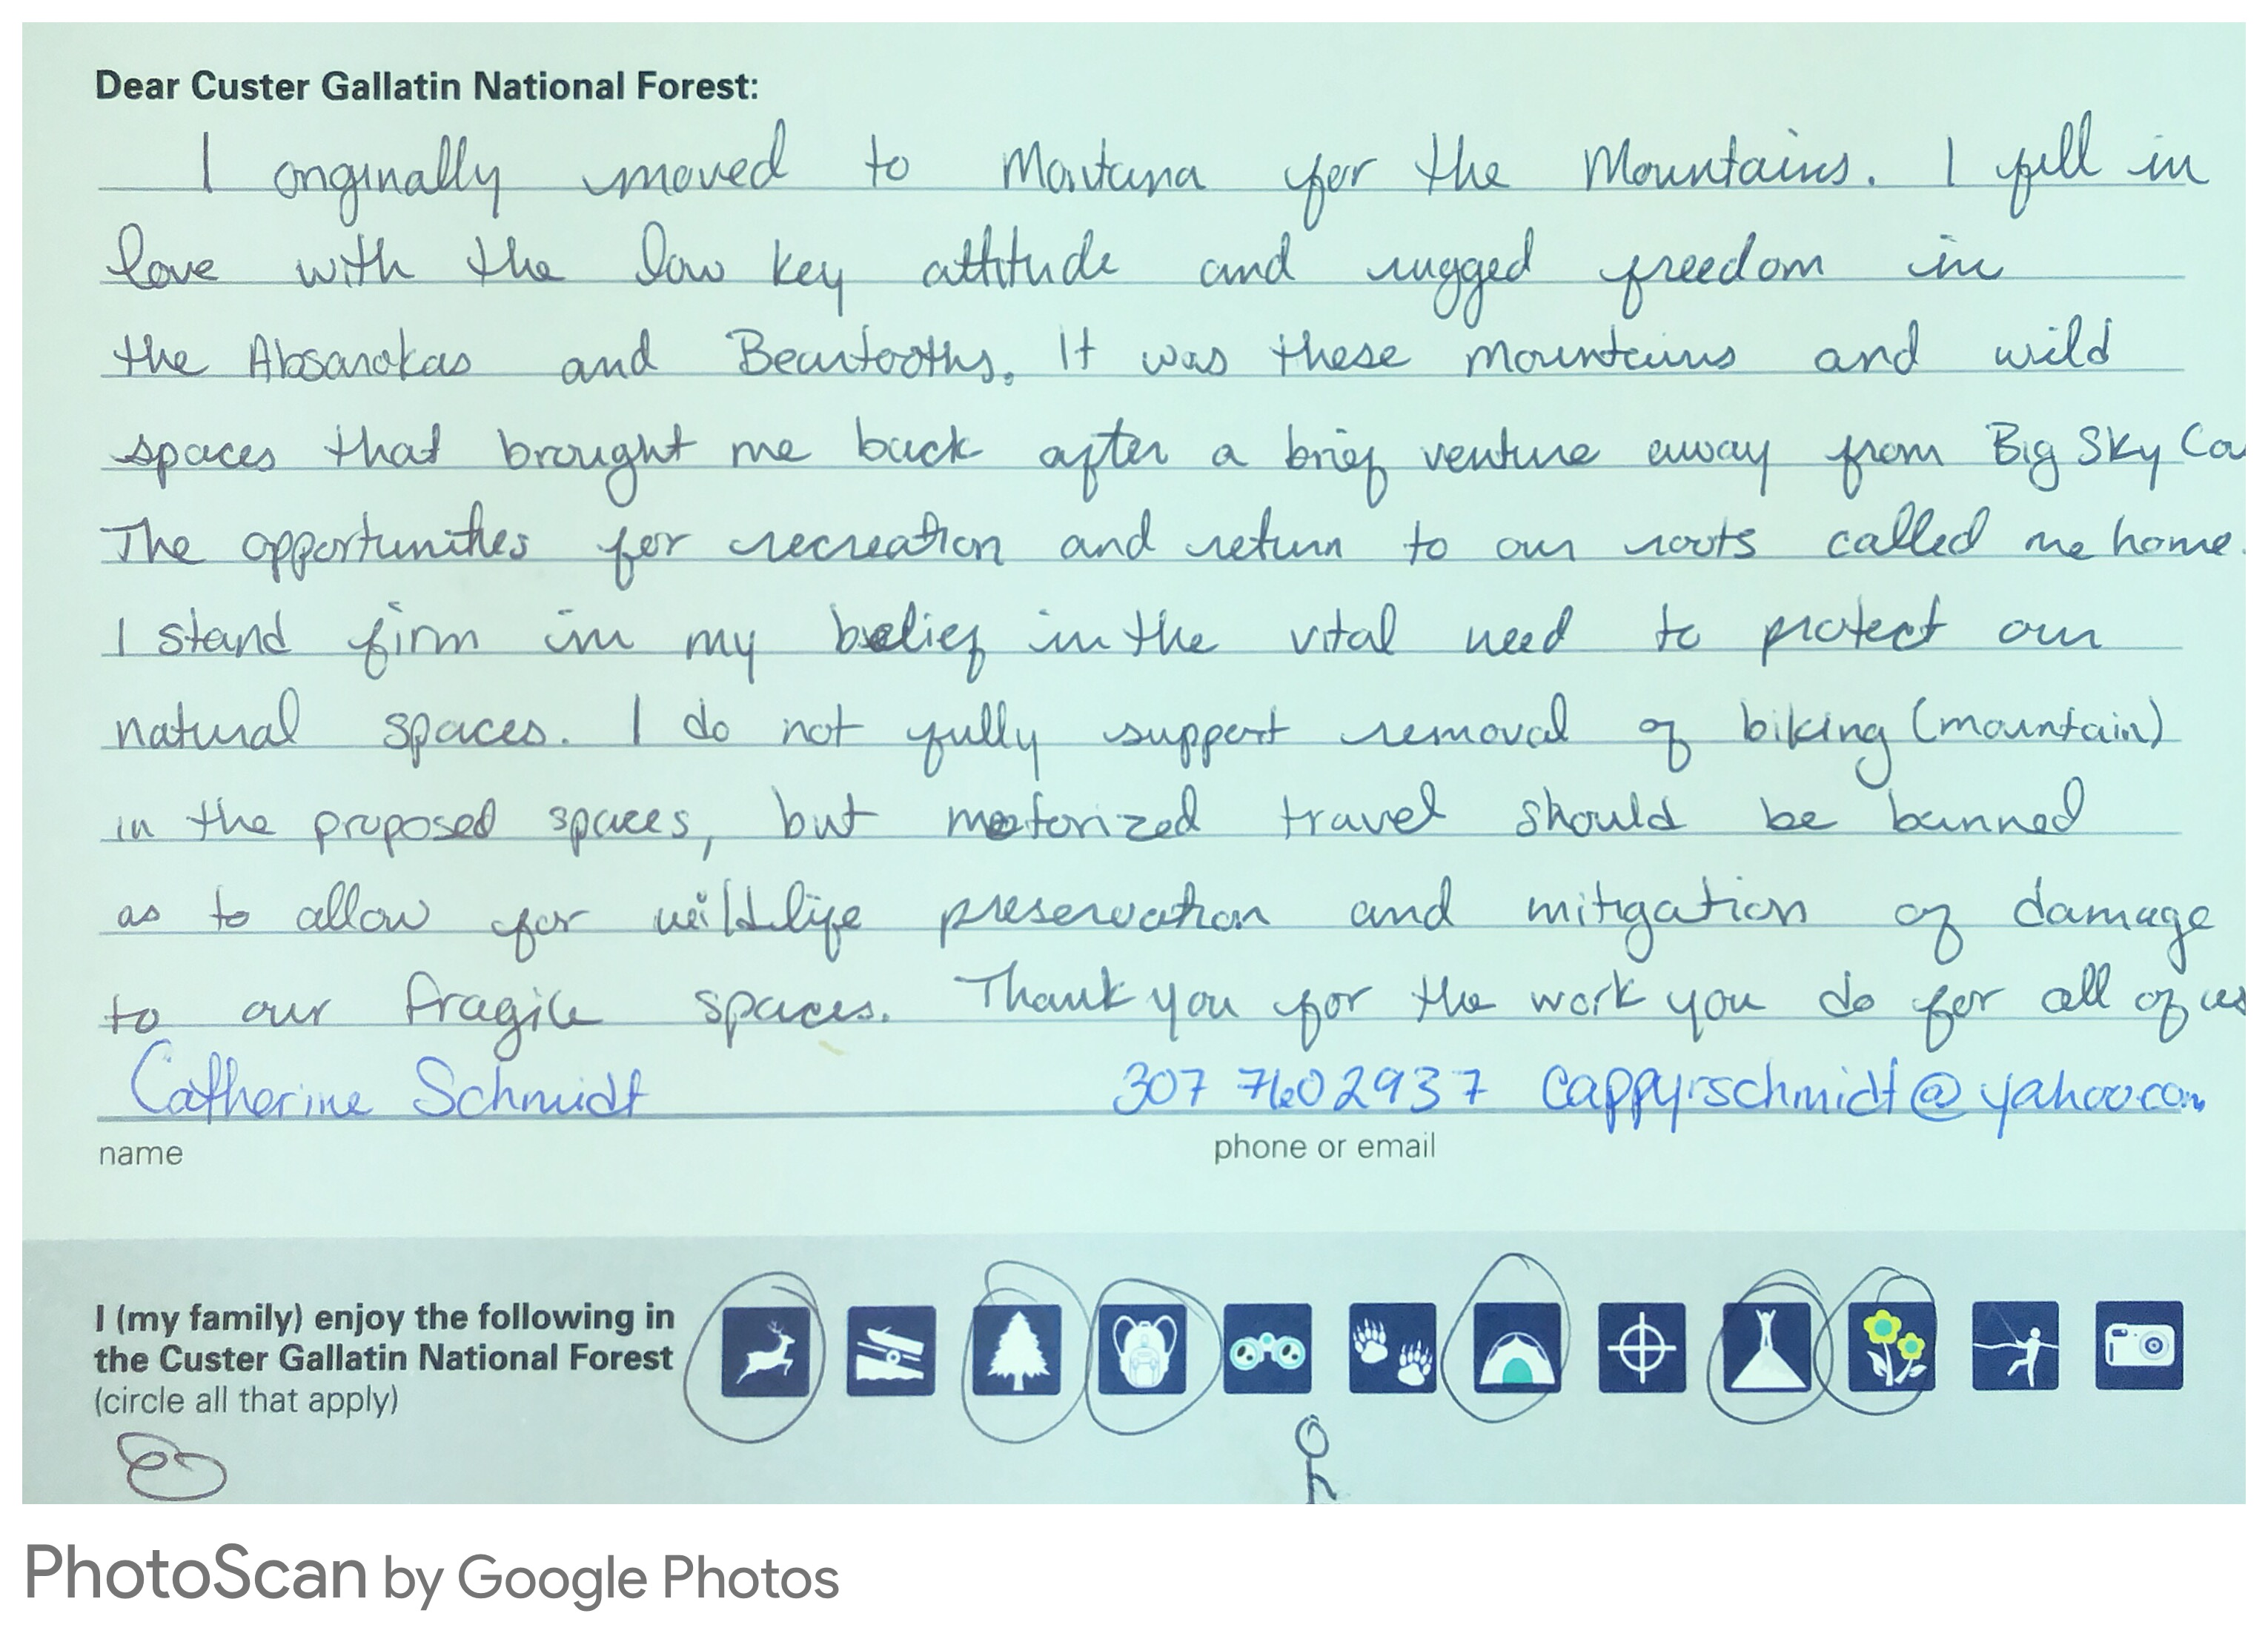 Dear Custer Gallatin National Forest:
I originally moved to Montana for the Mountains. I fell in
love with the low key attitude and rugged freedom in
the Absarokas and Beartooths. It was these mountains and wild
spaces that brought me back after a brief venture away from Big Sky Cou
The opportunities for recreation and return to our roots called me home.
I stand firm in my belief in the vital need to protect our
natural spaces. I do not fully support removal of biking (mountain)
in the proposed spaces, but motorized travel should be banned
as to allow for wildlife preservation and mitigation of damage
to our fragile spaces. Thank you for the work you do for all of us
Catherine Schmidt 307 7602937 cappyrschmidt@yahoo.com
name phone or email
I (my family) enjoy the following in
the Custer Gallatin National Forest
(circle all that apply)
PhotoScan by Google Photos